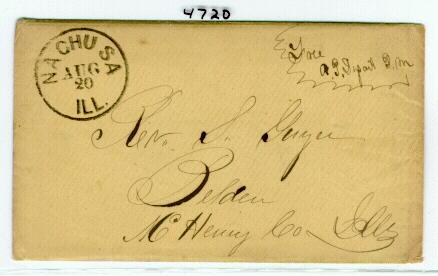 4720
NACHUSA
AUG
20
ILL.
Free
P.M.
Rev. S. Guyer
Belden
McHenry Co Ills